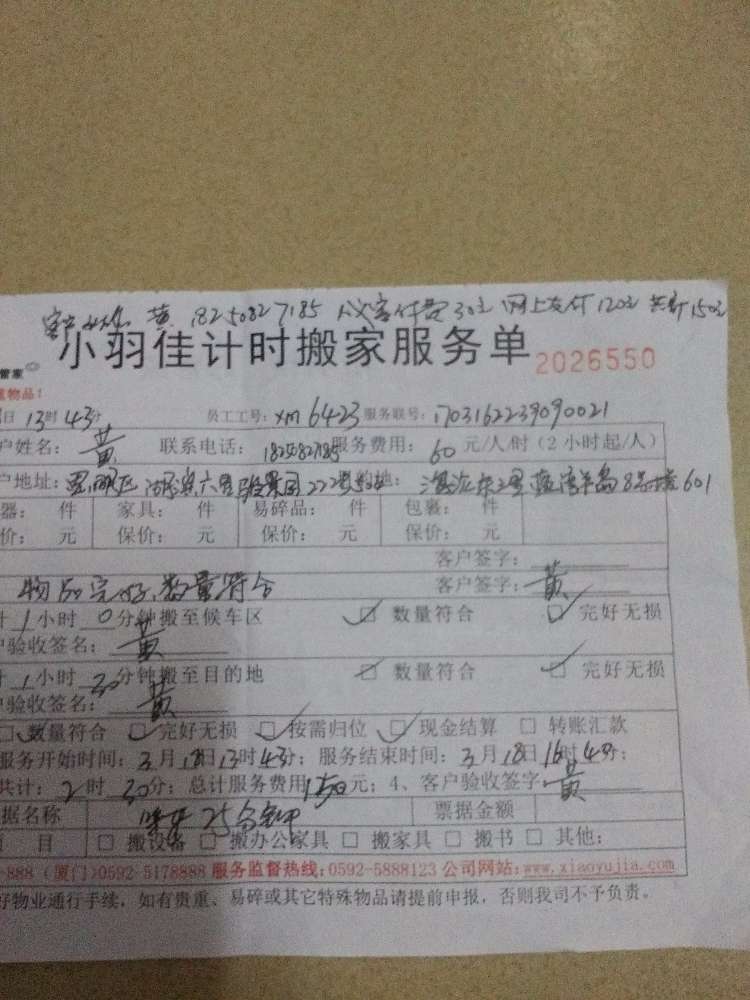 黄 18250827185 付费30元 网上支付120元 共计150元
小羽佳计时搬家服务单 2026550
管家
重物品!
日 13时43分 员工工号: xm6423 服务联号: 1703162239090021
户姓名: 黄 联系电话: 服务费用: 60 元/人/时 (2小时起/人)
户地址: 222 地: 8号楼601
器: 件 家具: 件 易碎品: 件 包裹: 件
价: 元 保价: 元 保价: 元 保价: 元
客户签字:
物品完好,数量符合 客户签字: 黄
计 1 小时 0 分钟搬至候车区 ☑ 数量符合 ☑ 完好无损
户验收签名: 黄
计 1 小时 30 分钟搬至目的地 ☑ 数量符合 ☑ 完好无损
户验收签名: 黄
☑ 数量符合 ☑ 完好无损 ☑ 按需归位 ☑ 现金结算 □ 转账汇款
服务开始时间: 3 月 18 日 13 时 43 分; 服务结束时间: 3 月 18 日 16 时 4 分;
共计: 2 时 30 分; 总计服务费用 150 元; 4、客户验收签字 黄
据名称 25分钟 票据金额
项 目 □ 搬设备 □ 搬办公家具 □ 搬家具 □ 搬书 □ 其他:
-888 (厦门)0592-5178888 服务监督热线:0592-5888123 公司网站:www.xiaoyujia.com
好物业通行手续,如有贵重、易碎或其它特殊物品请提前申报,否则我司不予负责。